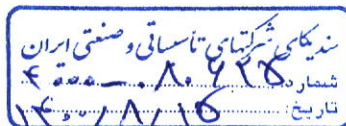 سندیکای شرکتهای تأسیساتی و صنعتی ایران
شماره:
تاریخ: ۱۴۰۰/۸/۱۵